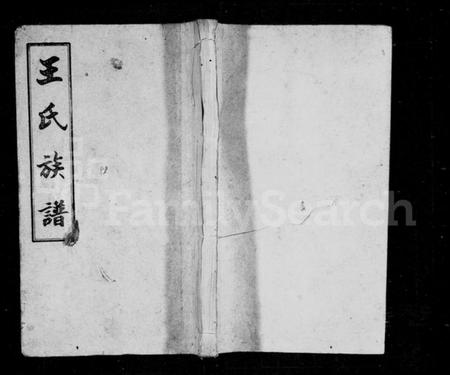 王氏族譜
FamilySearch